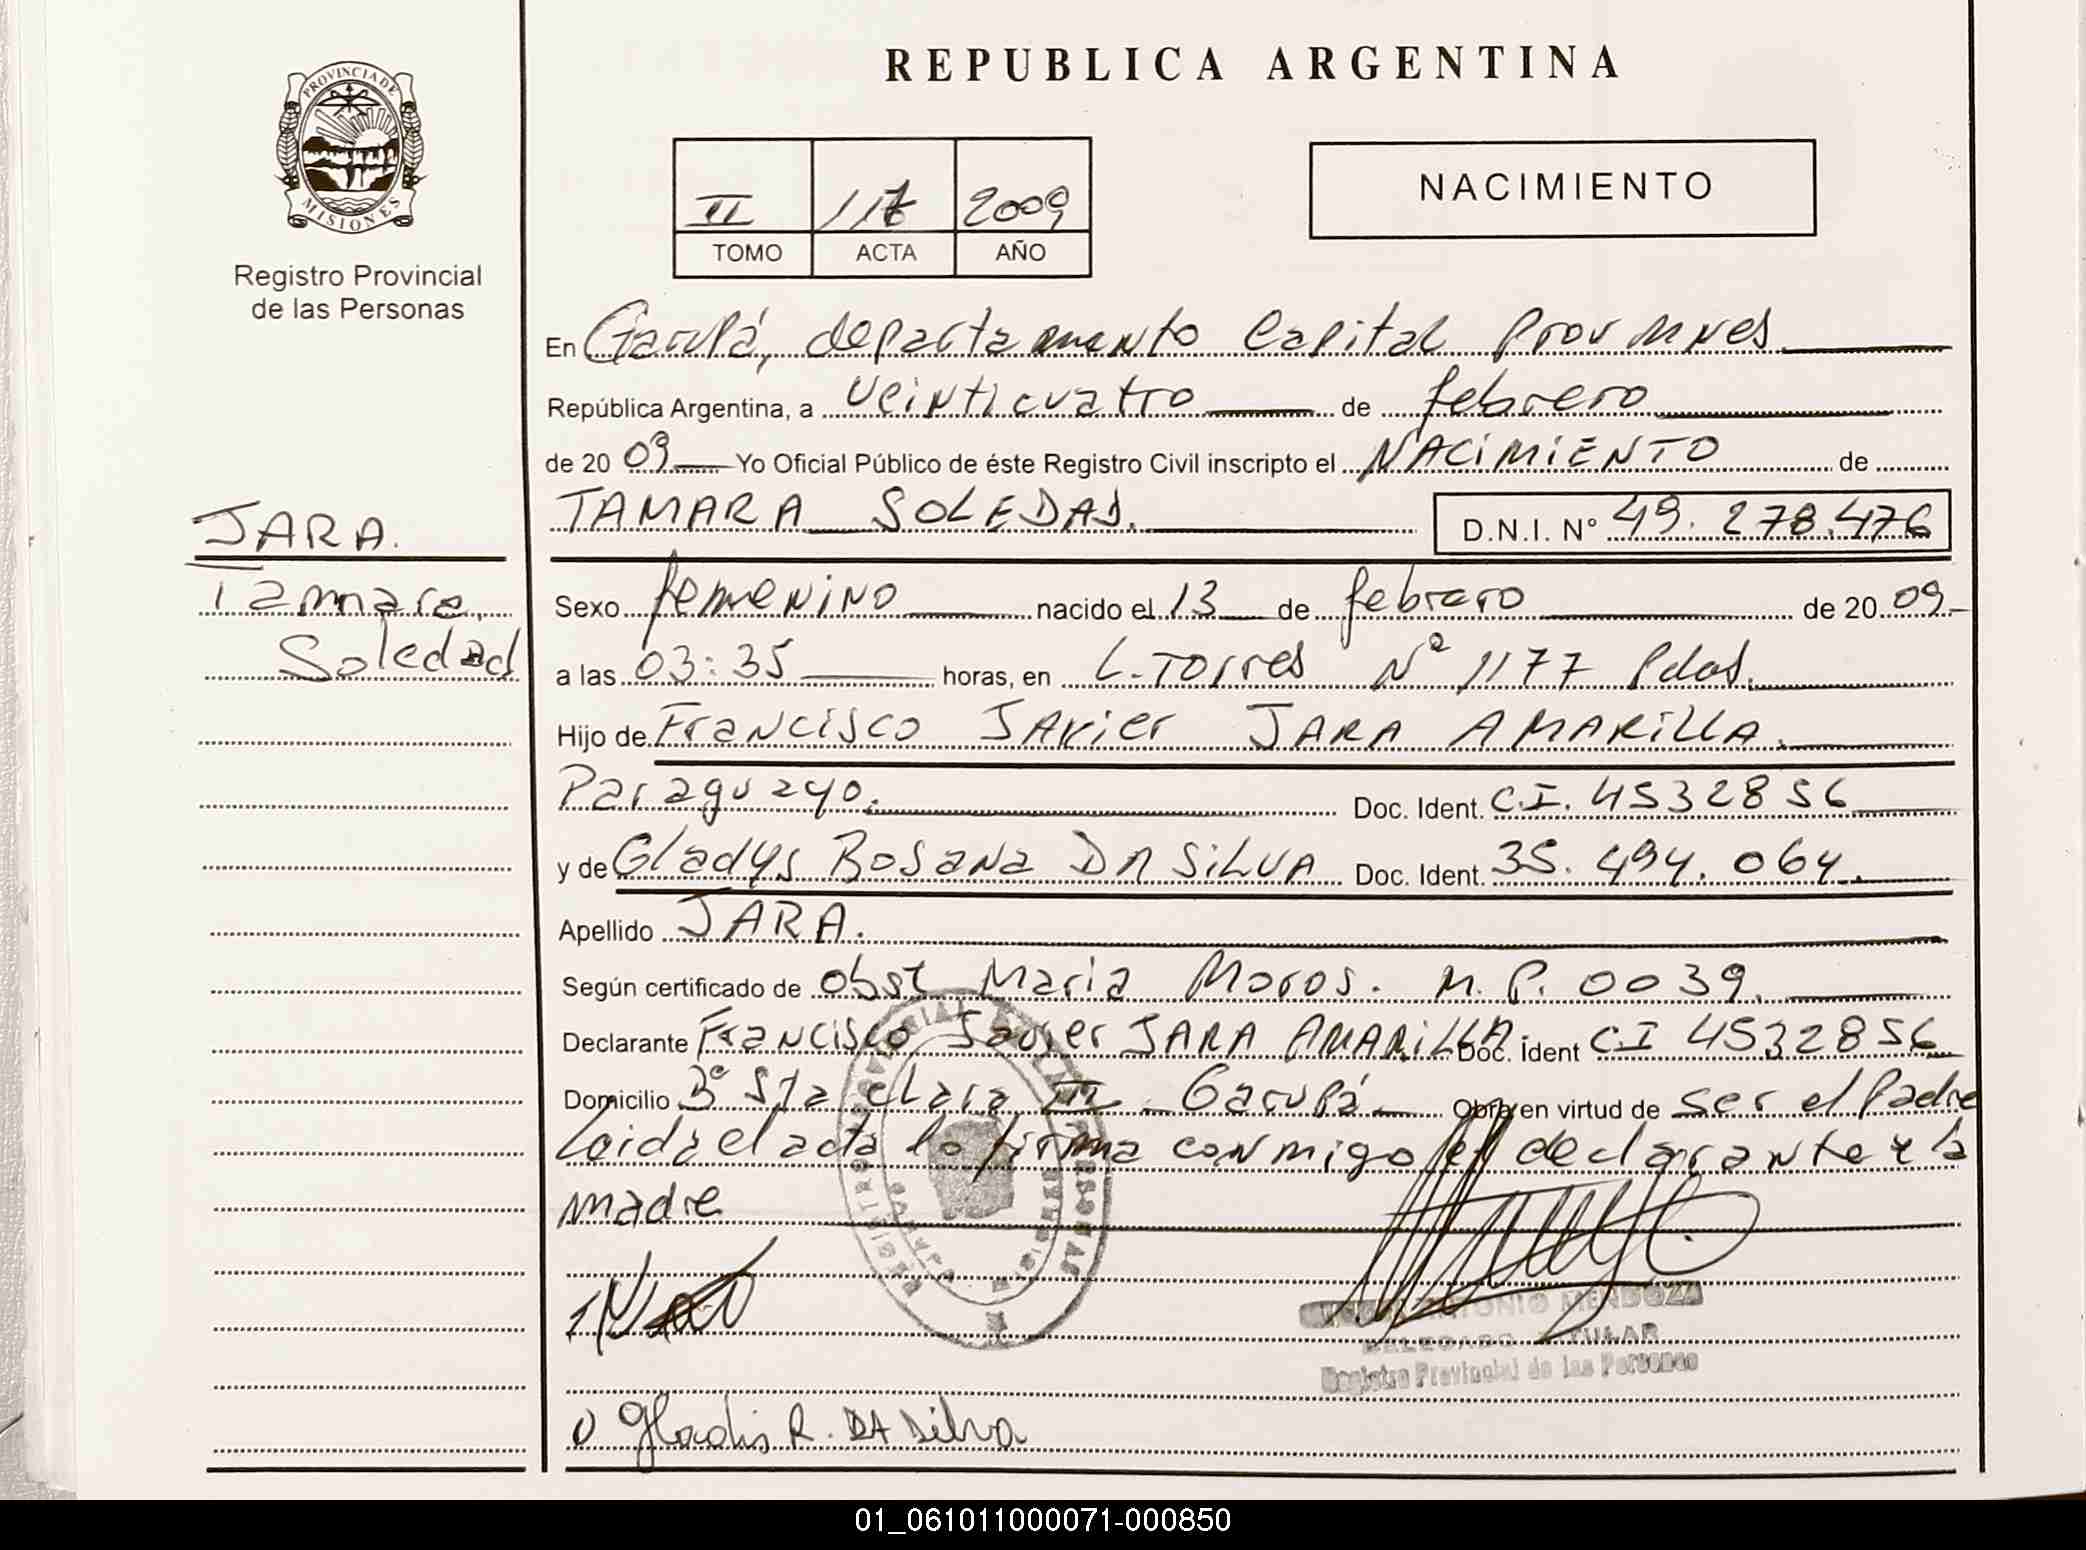 REPUBLICA ARGENTINA
PROVINCIA DE
MISIONES
Registro Provincial
de las Personas
II 2009
TOMO ACTA AÑO
NACIMIENTO
En Garupá, departamento Capital Prov Mnes
República Argentina, a veinticuatro de febrero
de 20 09 Yo Oficial Público de éste Registro Civil inscripto el NACIMIENTO de
TAMARA SOLEDAD. D.N.I. N° 49.278.476
JARA.
Tamara
Soledad
Sexo femenino nacido el 13 de febrero de 20 09
a las 03:35 horas, en L. Torres Nº 1177 Pdas.
Hijo de Francisco Javier JARA AMARILLA.
Paraguayo. Doc. Ident. C.I. 4532856
y de Gladys Rosana DA SILVA Doc. Ident. 35.494.064.
Apellido JARA.
Según certificado de obst Maria Moros. M.P. 0039.
Declarante Francisco Javier JARA AMARILLA. Doc. Ident CI 4532856
Domicilio Bº Sta Clara III - Garupá Obra en virtud de ser el Padre
Leida el acta lo firma conmigo el declarante y la
madre
REGISTRO PROVINCIAL DE LAS PERSONAS
ANTONIO MENDOZA
DELEGADO TITULAR
Registro Provincial de las Personas
Gladis R. DA Silva
01_061011000071-000850